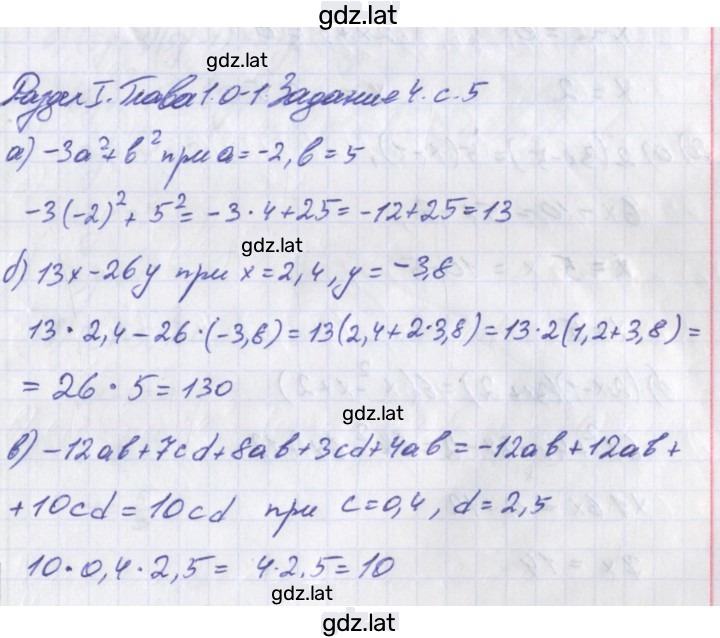 gdz.lat
gdz.lat
Раздел I. Глава 1. 0-1. Задание 4. с. 5
а) -3a²+b² при a=-2, b=5
-3(-2)²+5²=-3·4+25=-12+25=13
gdz.lat
б) 13x-26y при x=2,4, y=-3,8
13·2,4-26·(-3,8)=13(2,4+2·3,8)=13·2(1,2+3,8)=
=26·5=130
gdz.lat
в) -12ab+7cd+8ab+3cd+4ab=-12ab+12ab+
+10cd=10cd при c=0,4, d=2,5
10·0,4·2,5= 4·2,5=10
gdz.lat
gdz.lat